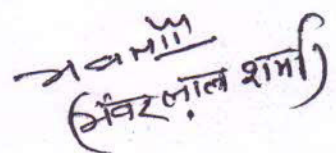 (भंवर लाल शर्मा)